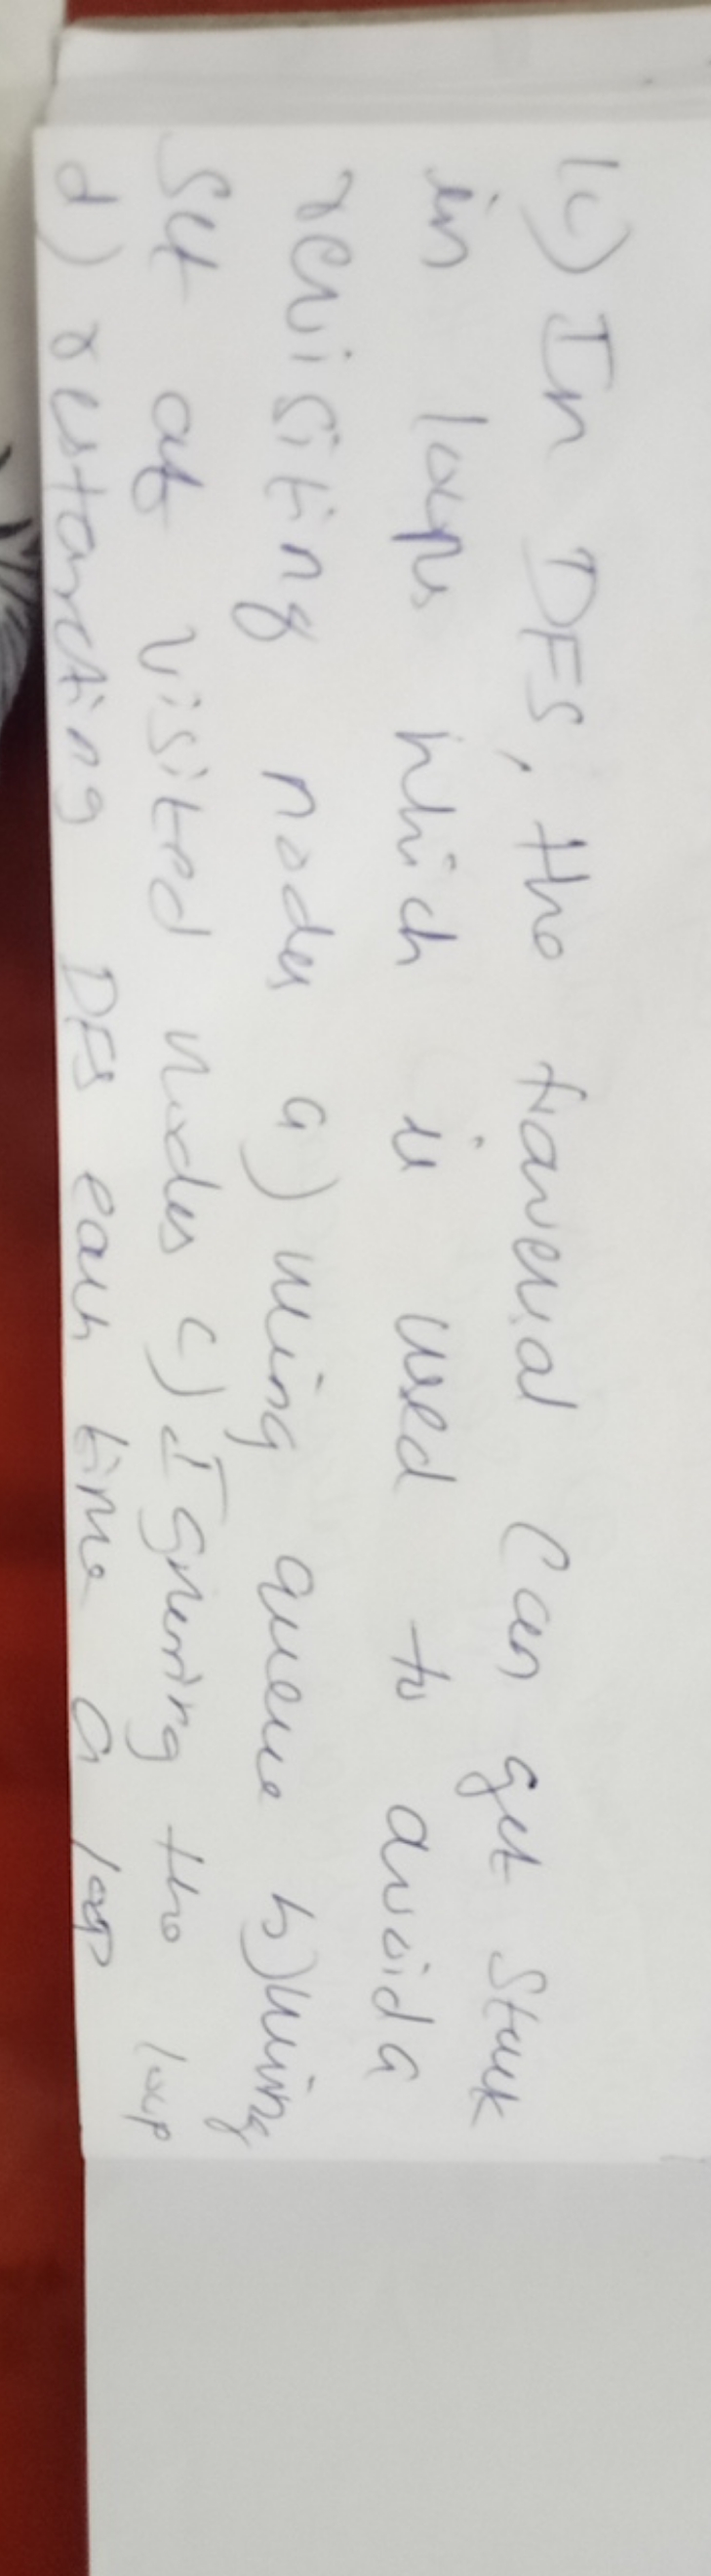 1c) In DFS, the traversal can get stuck
in loops which is used to avoid a
revisiting nodes a) using queue b) using
set of visited nodes c) Ignoring the loop
d) restarting DFS each time a loop